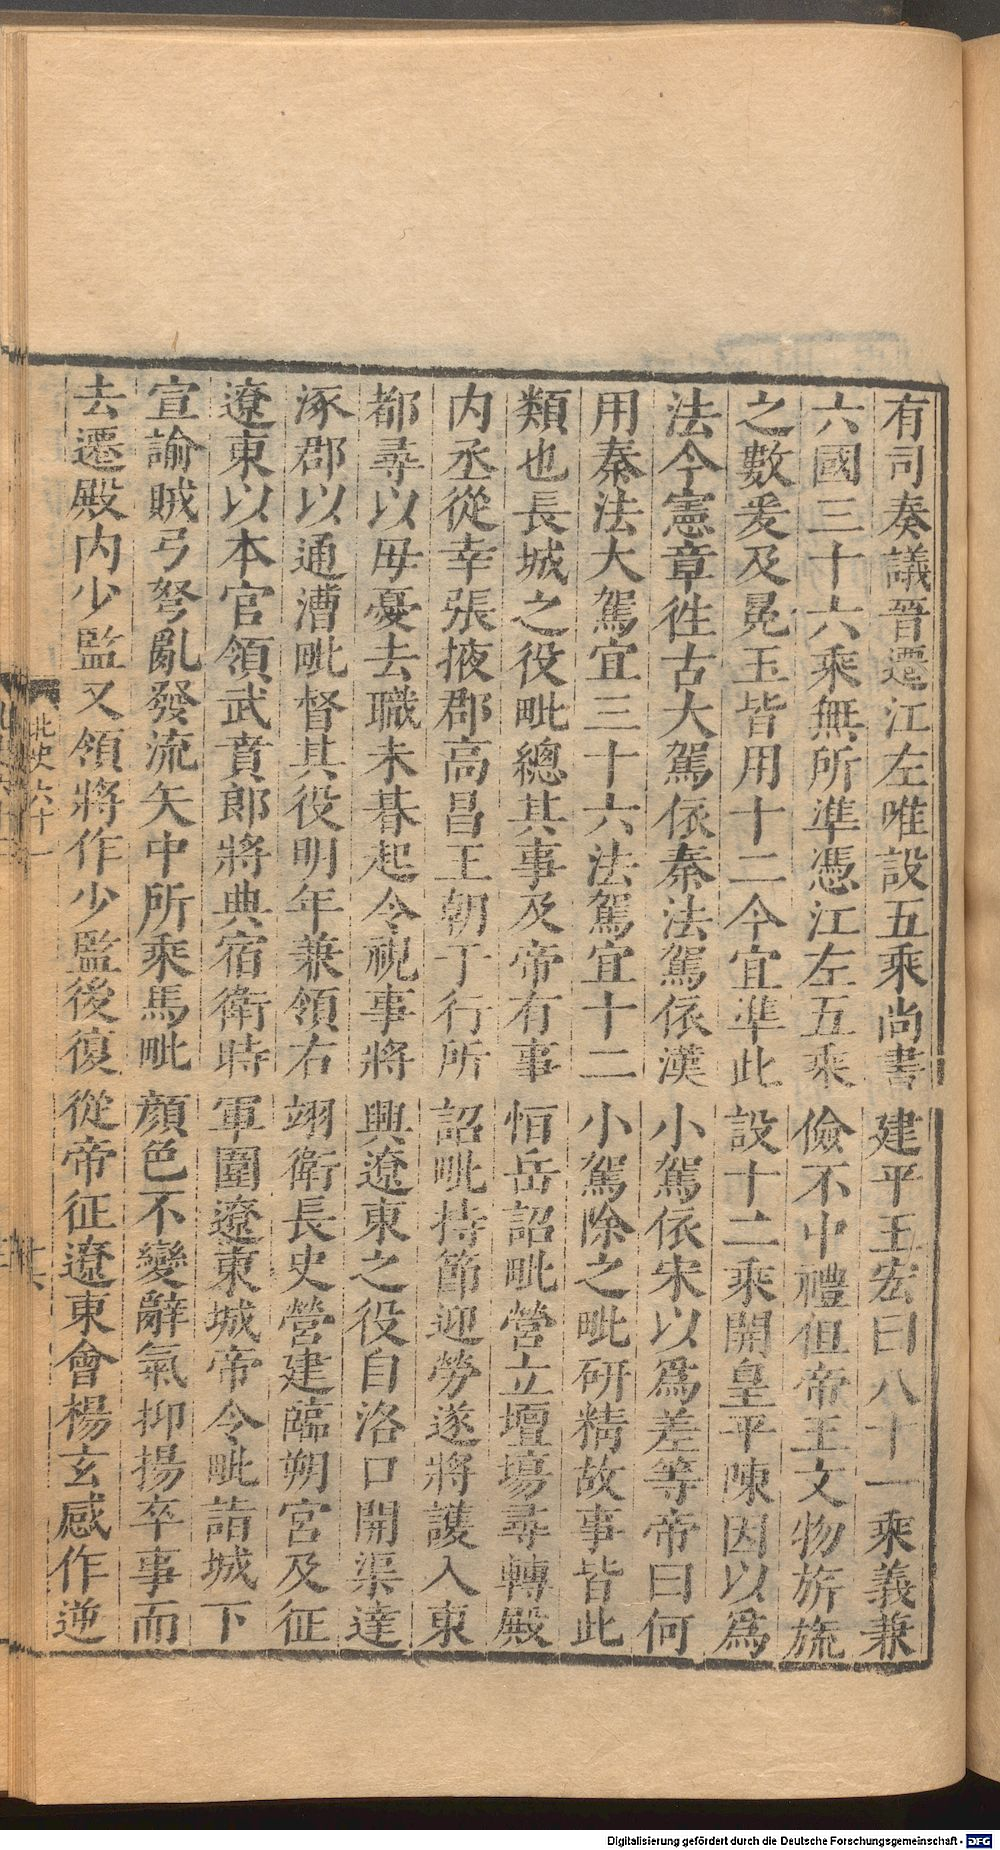 有司奏議晉遷江左唯設五乘尚書建平王宏曰八十一乘義兼
六國三十六乘無所準憑江左五乘儉不中禮但帝王文物旂旒
之數爰及冕玉皆用十二今宜準此設十二乘開皇平陳因以爲
法令憲章徃古大駕依秦法駕依漢小駕依宋以爲差等帝曰何
用秦法大駕宜三十六法駕宜十二小駕除之毗研精故事皆此
類也長城之役毗總其事及帝有事恒岳詔毗營立壇場尋轉殿
内丞從幸張掖郡高昌王朝于行所詔毗持節迎勞遂將護入東
都尋以毋憂去職未朞起令視事將興遼東之役自洛口開渠達
涿郡以通漕毗督其役明年兼領右翊衛長史營建臨朔宮及征
遼東以本官領武賁郎將典宿衛時軍圍遼東城帝令毗詣城下
宣諭賊弓弩亂發流矢中所乘馬毗顔色不變辭氣抑揚卒事而
去遷殿内少監又領將作少監後復從帝征遼東會楊玄感作逆
北史六十一
Digitalisierung gefördert durch die Deutsche Forschungsgemeinschaft - DFG